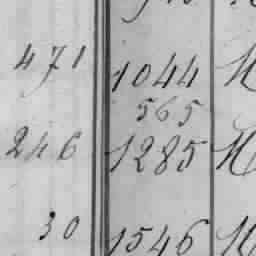 471 1044 M
565
246 1285 M
30 1546 M